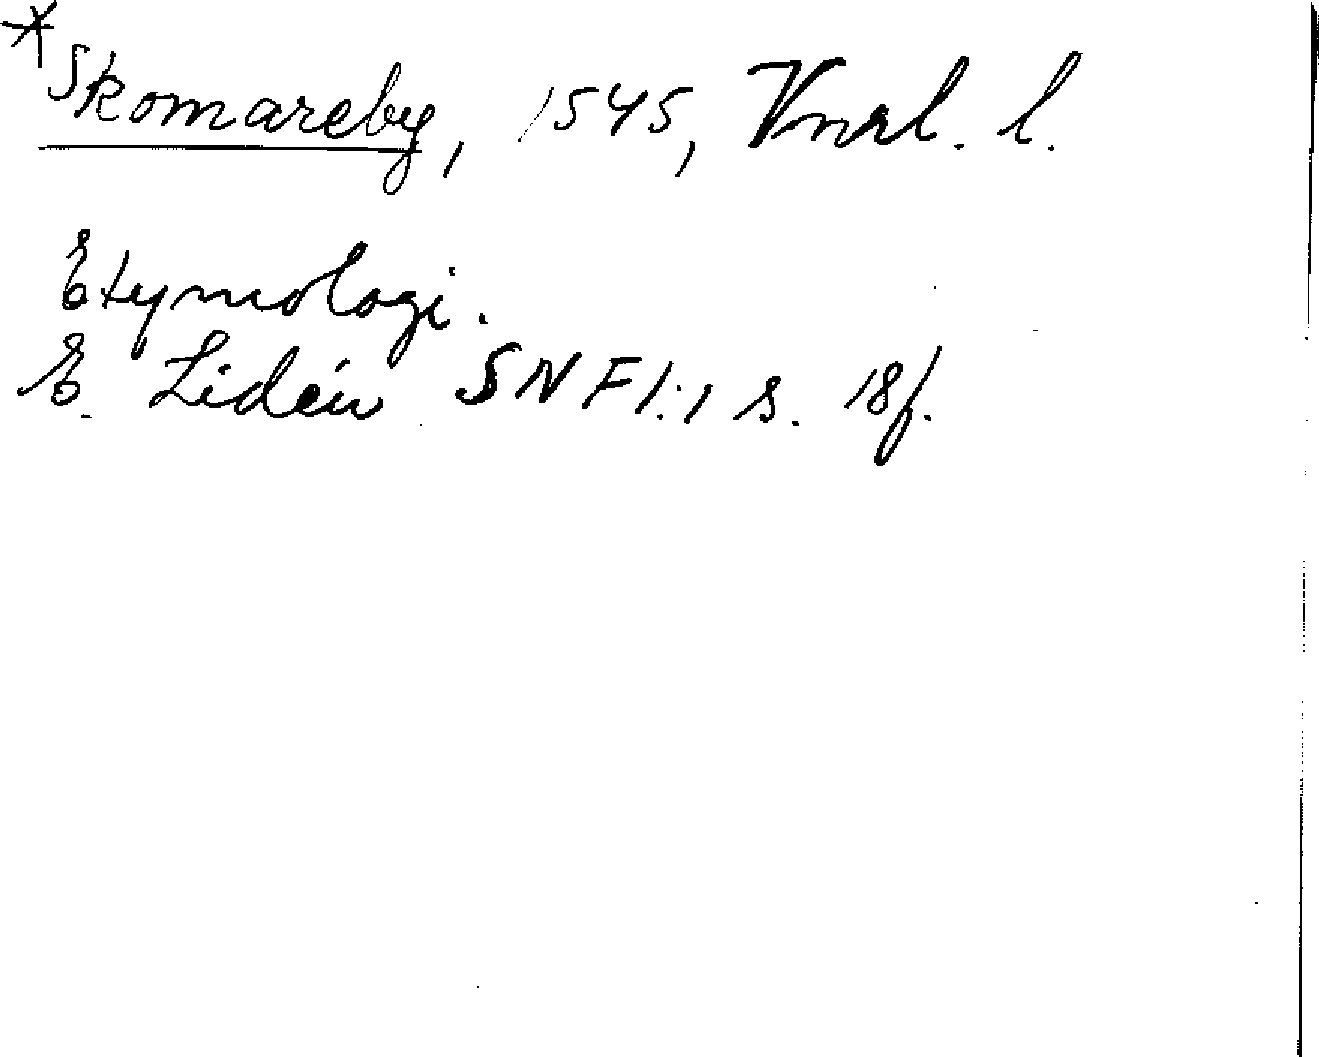 * Skomareby, 1545, Vnrl. l.
Etymologi.
E. Lidén SNF1:1 s. 18f.